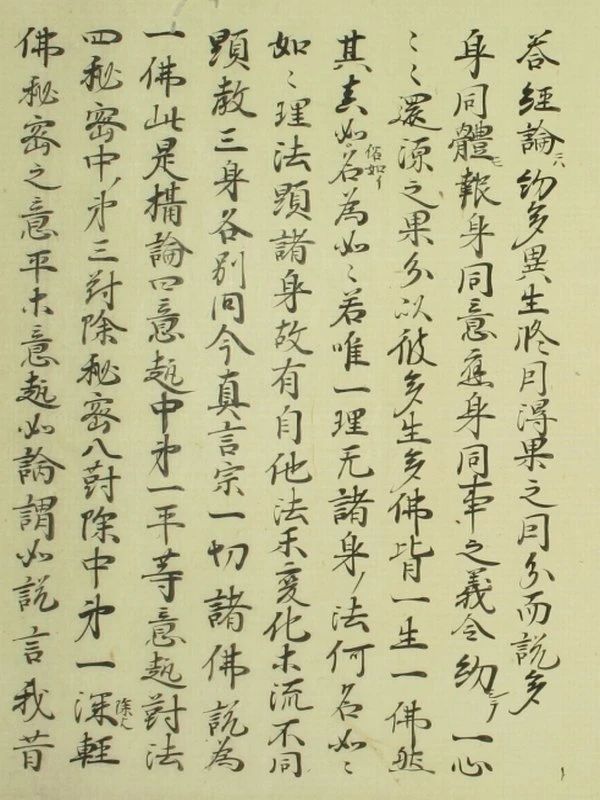 答經論約多異生修因得果之因分而說多
身同體報身同意應身同事之義今約一心
〻〻還源之果分以彼多生多佛皆一生一佛然
其真如名為如〻若唯一理无諸身ノ法何名如〻
如〻理法顯諸身故有自他法禾變化木流不同
顯教三身各別問今真言宗一切諸佛說為
一佛此是攝論四意趣中第一平等意趣對法
四秘密中ノ第三對除秘密八對除中第一深輕
佛秘密之意平木意趣如論謂如說言我昔